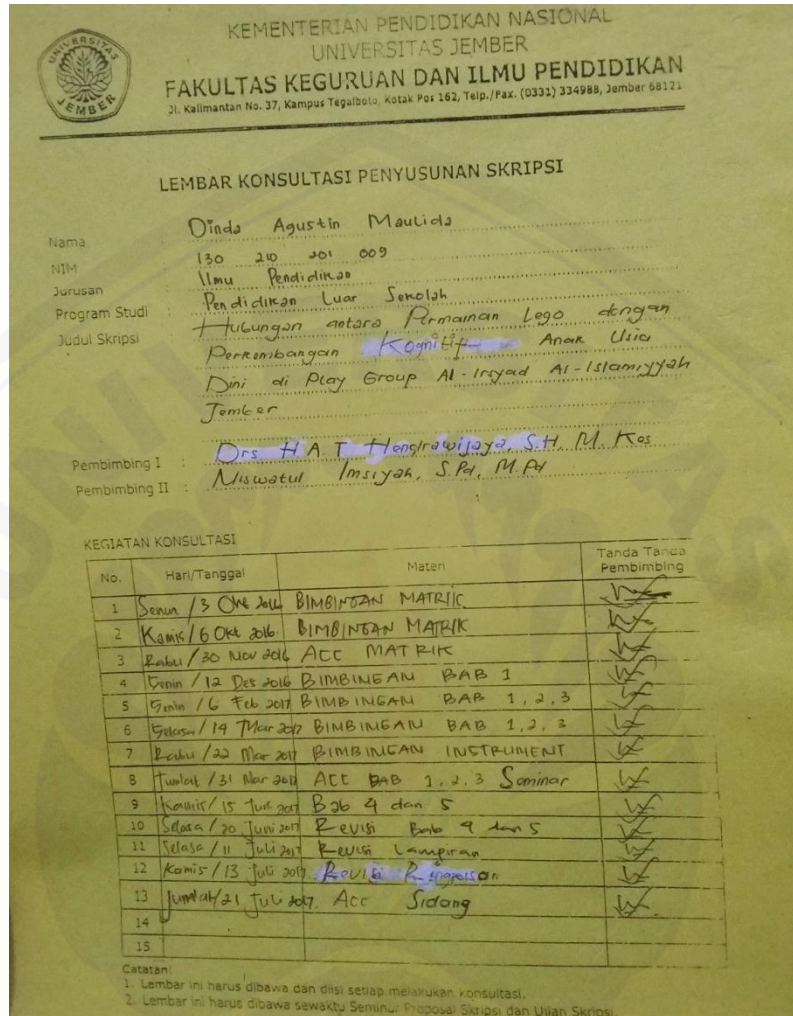 KEMENTERIAN PENDIDIKAN NASIONAL
UNIVERSITAS JEMBER
FAKULTAS KEGURUAN DAN ILMU PENDIDIKAN
Jl. Kalimantan No. 37, Kampus Tegalboto, Kotak Pos 162, Telp./Fax. (0331) 334988, Jember 68121
UNIVERSITAS JEMBER
LEMBAR KONSULTASI PENYUSUNAN SKRIPSI
Nama : Dinda Agustin Maulida
NIM : 130 210 201 009
Jurusan : Ilmu Pendidikan
Program Studi : Pendidikan Luar Sekolah
Judul Skripsi : Hubungan antara Permainan Lego dengan
Perkembangan Kognitif Anak Usia
Dini di Play Group Al-Irsyad Al-Islamiyyah
Jember
Pembimbing I : Drs H A T Hendrawijaya, S.H, M. Kes
Pembimbing II : Niswatul Imsiyah, S.Pd, M.Pd
KEGIATAN KONSULTASI
No. Hari/Tanggal Materi Tanda Tanda Pembimbing
1 Senin / 3 Okt 2016 BIMBINGAN MATRIK
2 Kamis / 6 Okt 2016 BIMBINGAN MATRIK
3 Rabu / 30 Nov 2016 ACC MATRIK
4 Senin / 12 Des 2016 BIMBINGAN BAB 1
5 Senin / 6 Feb 2017 BIMBINGAN BAB 1, 2, 3
6 Selasa / 14 Mar 2017 BIMBINGAN BAB 1, 2, 3
7 Rabu / 22 Mar 2017 BIMBINGAN INSTRUMENT
8 Jumlat / 31 Mar 2017 ACC BAB 1, 2, 3 Seminar
9 Kamis / 15 Juni 2017 Bab 4 dan 5
10 Selasa / 20 Juni 2017 Revisi Bab 4 dan 5
11 Selasa / 11 Juli 2017 Revisi Lampiran
12 Kamis / 13 Juli 2017 Revisi
13 Jumlat / 21 Juli 2017 Acc Sidang
14
15
Catatan:
1. Lembar ini harus dibawa dan diisi setiap melakukan konsultasi.
2. Lembar ini harus dibawa sewaktu Seminar Proposal Skripsi dan Ujian Skripsi.